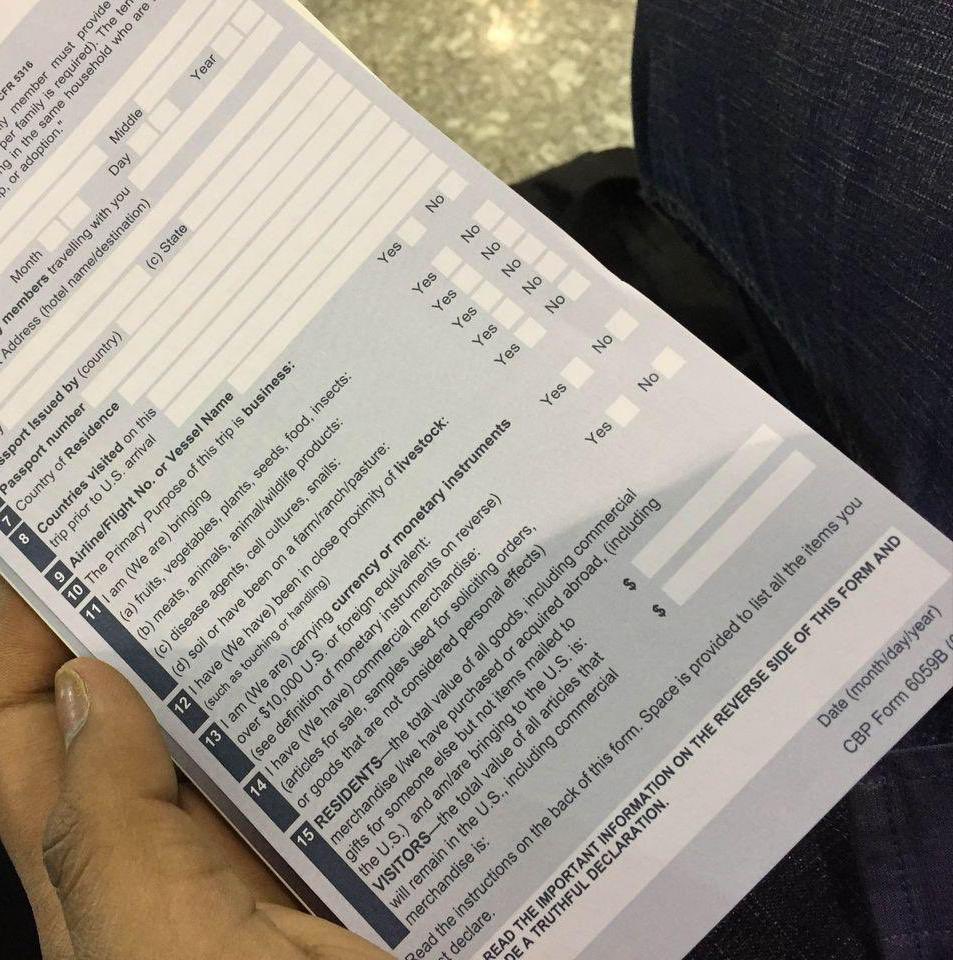 CFR 5316
member must provide
per family is required). The
in the same household who are
or adoption."
Middle
Month Day Year
members travelling with you
Address (hotel name/destination)
(c) State
Issued by (country)
Passport number
7 Country of Residence
8 Countries visited on this
trip prior to U.S. arrival
9 Airline/Flight No. or Vessel Name
10 The Primary Purpose of this trip is business: Yes No
11 I am (We are) bringing
(a) fruits, vegetables, plants, seeds, food, insects: Yes No
(b) meats, animals, animal/wildlife products: Yes No
(c) disease agents, cell cultures, snails: Yes No
(d) soil or have been on a farm/ranch/pasture: Yes No
12 I have (We have) been in close proximity of livestock: Yes No
(such as touching or handling)
13 I am (We are) carrying currency or monetary instruments
over $10,000 U.S. or foreign equivalent: Yes No
(see definition of monetary instruments on reverse)
14 I have (We have) commercial merchandise:
(articles for sale, samples used for soliciting orders,
or goods that are not considered personal effects)
15 RESIDENTS—the total value of all goods, including commercial
merchandise I/we have purchased or acquired abroad, (including
gifts for someone else but not items mailed to
the U.S.) and am/are bringing to the U.S. is: $
VISITORS—the total value of all articles that
will remain in the U.S., including commercial
merchandise is: $
Read the instructions on the back of this form. Space is provided to list all the items you
declare.
READ THE IMPORTANT INFORMATION ON THE REVERSE SIDE OF THIS FORM AND
A TRUTHFUL DECLARATION.
Date (month/day/year)
CBP Form 6059B